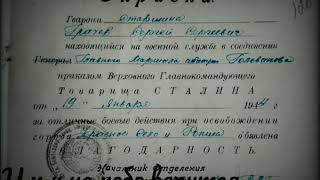 Справка
Гвардии Старшина
Грачев Сергей Сергеевич
находящийся на военной службе в соединении
Генерал Главного Маршала авиации Голованова
приказом Верховного Главнокомандующего
Товарища СТАЛИНА
от „19" января 1944 г.
за отличные боевые действия при освобождении
города Красное село и Ропша объявлена
БЛАГОДАРНОСТЬ.
Начальник отделения